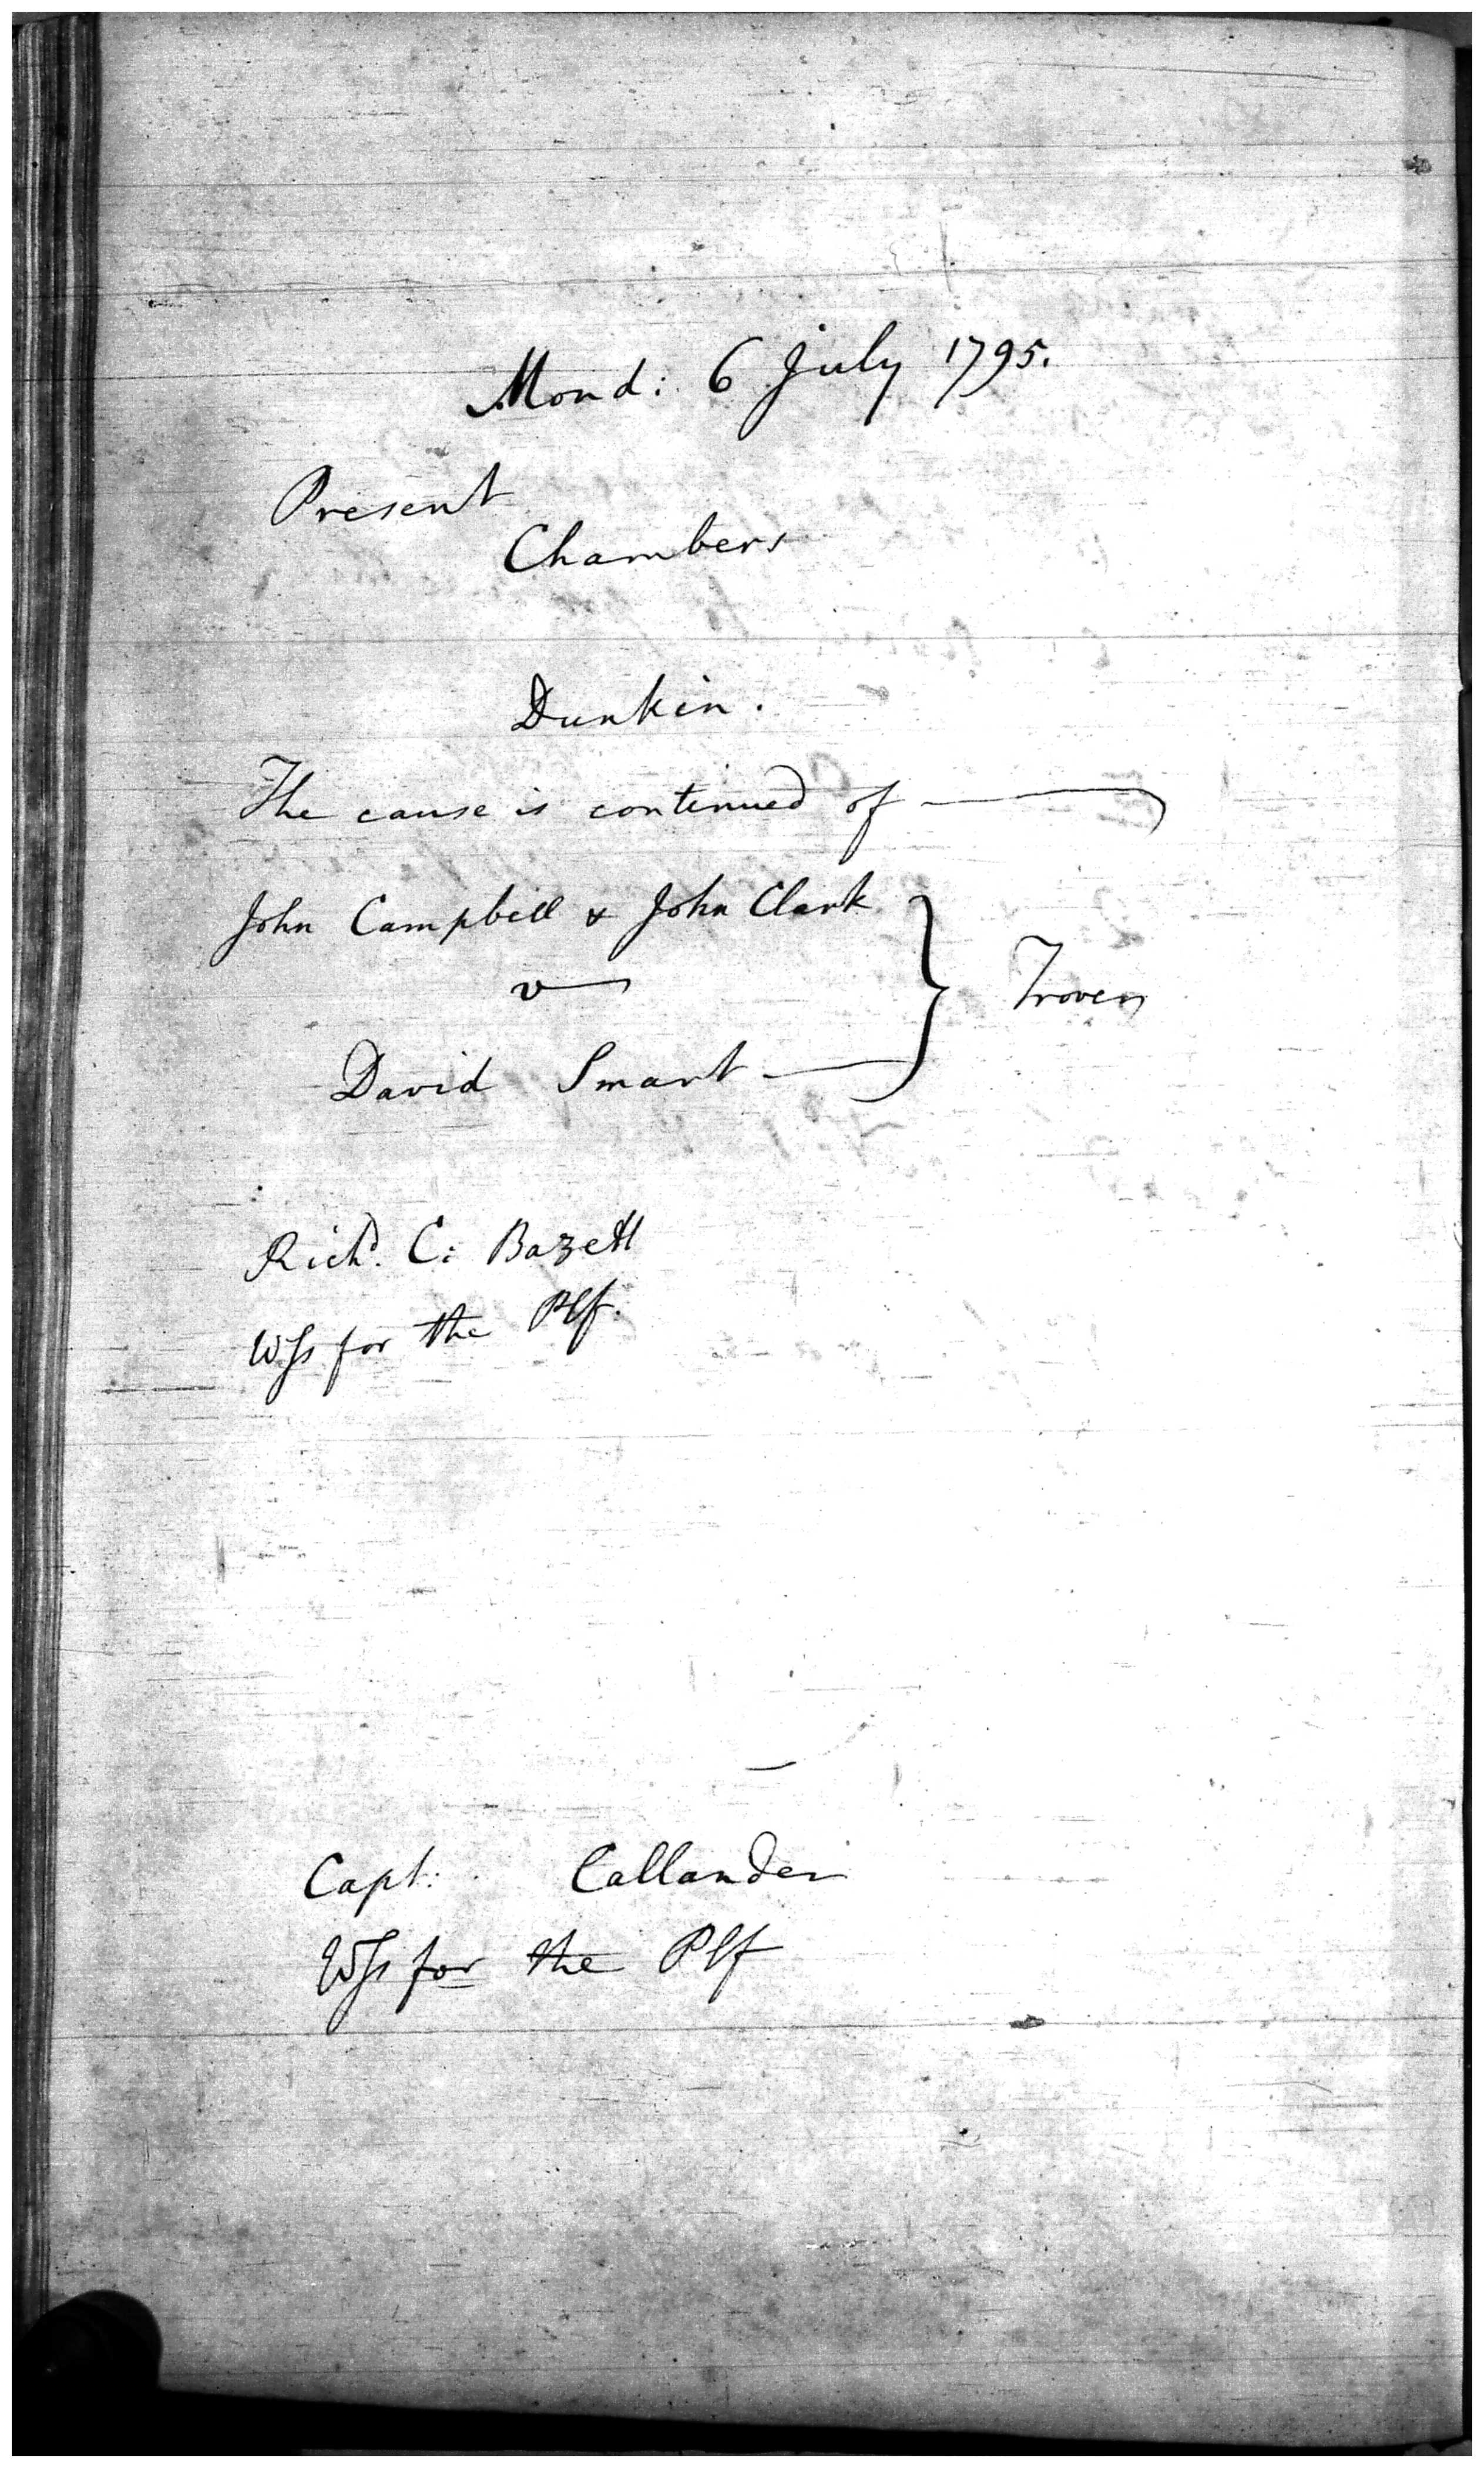 Mond: 6 July 1795.
Present
Chambers
Dunkin.
The cause is continued of
John Campbell & John Clark
v
David Smart
Trover
Richd. C: Bazett
Wss for the Plf.
Capt: Callander
Wss for the Plf